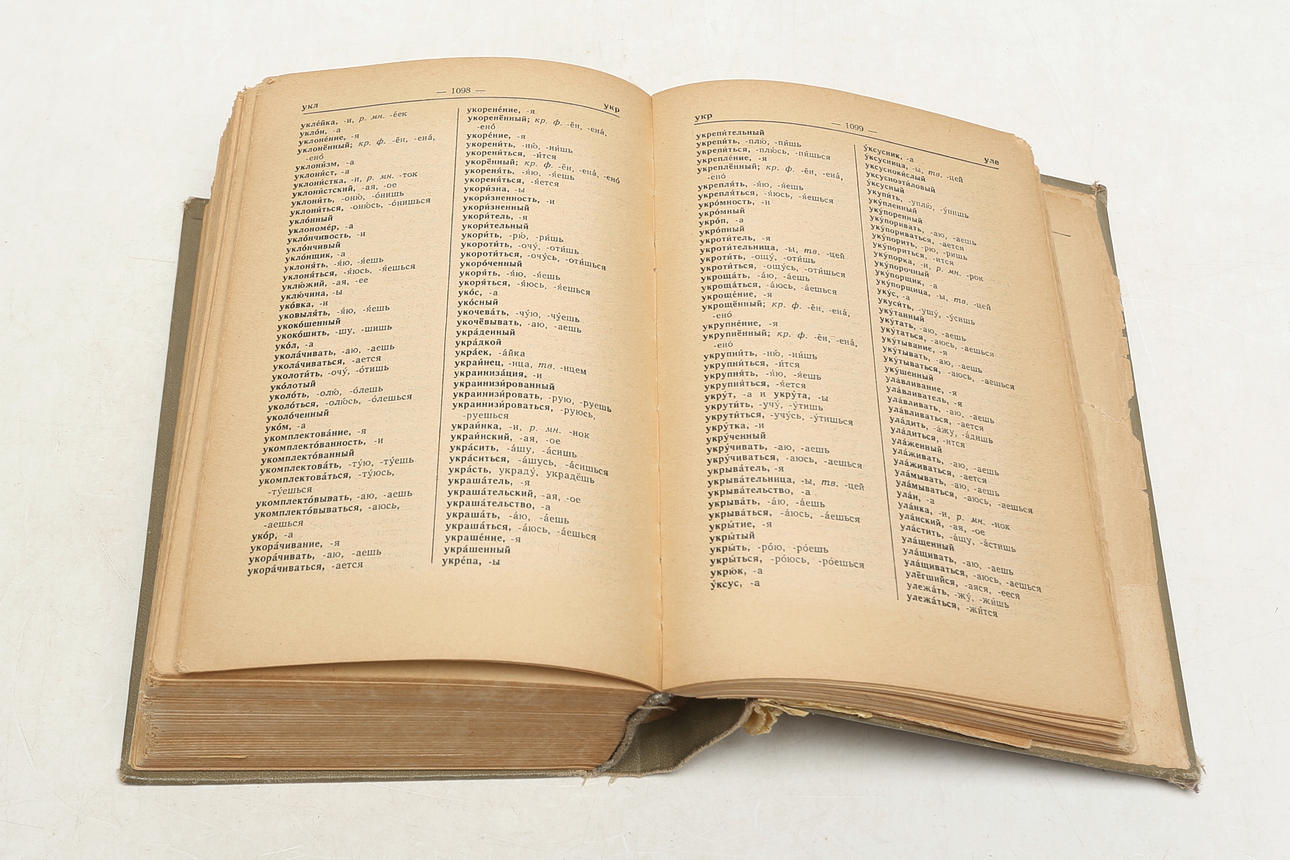 укл — 1098 — укр
укле́йка, -и, р. мн. -е́ек
укло́н, -а
уклоне́ние, -я
уклонённый; кр. ф. -ён, -ена́,
-ено́
уклони́зм, -а
уклони́ст, -а
уклони́стка, -и, р. мн. -ток
уклони́стский, -ая, -ое
уклони́ть, -оню́, -о́нишь
уклони́ться, -оню́сь, -о́нишься
укло́нный
уклономе́р, -а
укло́нчивость, -и
укло́нчивый
укло́нщик, -а
уклоня́ть, -я́ю, -я́ешь
уклоня́ться, -я́юсь, -я́ешься
уклю́жий, -ая, -ее
уклю́чина, -ы
уко́вка, -и
уковыля́ть, -я́ю, -я́ешь
укоко́шенный
укоко́шить, -шу, -шишь
уко́л, -а
укола́чивать, -аю, -аешь
укола́чиваться, -ается
уколоти́ть, -очу́, -о́тишь
уко́лотый
уколо́ть, -олю́, -о́лешь
уколо́ться, -олю́сь, -о́лешься
уколо́ченный
уко́м, -а
укомплектова́ние, -я
укомплекто́ванность, -и
укомплекто́ванный
укомплектова́ть, -ту́ю, -ту́ешь
укомплектова́ться, -ту́юсь,
-ту́ешься
укомплекто́вывать, -аю, -аешь
укомплекто́вываться, -аюсь,
-аешься
уко́р, -а
укора́чивание, -я
укора́чивать, -аю, -аешь
укора́чиваться, -ается
укорене́ние, -я
укоренённый; кр. ф. -ён, -ена́,
-ено́
укоре́ние, -я
укорени́ть, -ню́, -ни́шь
укорени́ться, -и́тся
укорённый; кр. ф. -ён, -ена́, -ено́
укореня́ть, -я́ю, -я́ешь
укореня́ться, -я́ется
укори́зна, -ы
укори́зненность, -и
укори́зненный
укори́тель, -я
укори́тельный
укори́ть, -рю́, -ри́шь
укороти́ть, -очу́, -оти́шь
укороти́ться, -очу́сь, -оти́шься
укоро́ченный
укоря́ть, -я́ю, -я́ешь
укоря́ться, -я́юсь, -я́ешься
уко́с, -а
уко́сный
укочева́ть, -чу́ю, -чу́ешь
укочёвывать, -аю, -аешь
укра́денный
укра́дкой
укра́ек, -а́йка
украи́нец, -нца, тв. -нцем
украиниза́ция, -и
украинизи́рованный
украинизи́ровать, -рую, -руешь
украинизи́роваться, -руюсь,
-руешься
украи́нка, -и, р. мн. -нок
украи́нский, -ая, -ое
укра́сить, -а́шу, -а́сишь
укра́ситься, -а́шусь, -а́сишься
укра́сть, украду́, украдёшь
украша́тель, -я
украша́тельский, -ая, -ое
украша́тельство, -а
украша́ть, -а́ю, -а́ешь
украша́ться, -а́юсь, -а́ешься
украше́ние, -я
укра́шенный
укре́па, -ы
укр — 1099 — уле
укрепи́тельный
укрепи́ть, -плю́, -пи́шь
укрепи́ться, -плю́сь, -пи́шься
укрепле́ние, -я
укреплённый; кр. ф. -ён, -ена́,
-ено́
укрепля́ть, -я́ю, -я́ешь
укрепля́ться, -я́юсь, -я́ешься
укро́мность, -и
укро́мный
укро́п, -а
укро́пный
укроти́тель, -я
укроти́тельница, -ы, тв. -цей
укроти́ть, -ощу́, -оти́шь
укроти́ться, -ощу́сь, -оти́шься
укроща́ть, -а́ю, -а́ешь
укроща́ться, -а́юсь, -а́ешься
укроще́ние, -я
укрощённый; кр. ф. -ён, -ена́,
-ено́
укрупне́ние, -я
укрупнённый; кр. ф. -ён, -ена́,
-ено́
укрупни́ть, -ню́, -ни́шь
укрупни́ться, -и́тся
укрупня́ть, -я́ю, -я́ешь
укрупня́ться, -я́ется
укру́т, -а и укру́та, -ы
укрути́ть, -учу́, -у́тишь
укрути́ться, -учу́сь, -у́тишься
укру́тка, -и
укру́ченный
укру́чивать, -аю, -аешь
укру́чиваться, -аюсь, -аешься
укрыва́тель, -я
укрыва́тельница, -ы, тв. -цей
укрыва́тельство, -а
укрыва́ть, -а́ю, -а́ешь
укрыва́ться, -а́юсь, -а́ешься
укры́тие, -я
укры́тый
укры́ть, -ро́ю, -ро́ешь
укры́ться, -ро́юсь, -ро́ешься
укрю́к, -а
у́ксус, -а
у́ксусник, -а
у́ксусница, -ы, тв. -цей
уксусноки́слый
уксусноэти́ловый
у́ксусный
укупи́ть, -уплю́, -у́пишь
уку́пленный
уку́поренный
уку́поривать, -аю, -аешь
уку́пориваться, -ается
уку́порить, -рю, -ришь
уку́пориться, -ится
уку́порка, -и, р. мн. -рок
уку́порочный
уку́порщик, -а
уку́порщица, -ы, тв. -цей
уку́с, -а
укуси́ть, -ушу́, -у́сишь
уку́танный
уку́тать, -аю, -аешь
уку́таться, -аюсь, -аешься
уку́тывание, -я
уку́тывать, -аю, -аешь
уку́тываться, -аюсь, -аешься
уку́шенный
ула́вливание, -я
ула́вливатель, -я
ула́вливать, -аю, -аешь
ула́вливаться, -ается
ула́дить, -а́жу, -а́дишь
ула́диться, -ится
ула́женный
ула́живать, -аю, -аешь
ула́живаться, -ается
ула́мывать, -аю, -аешь
ула́мываться, -аюсь, -аешься
ула́н, -а
ула́нка, -и, р. мн. -нок
ула́нский, -ая, -ое
ула́стить, -а́щу, -а́стишь
ула́щенный
ула́щивать, -аю, -аешь
ула́щиваться, -аюсь, -аешься
улёгшийся, -аяся, -ееся
улежа́ть, -жу́, -жи́шь
улежа́ться, -жи́тся